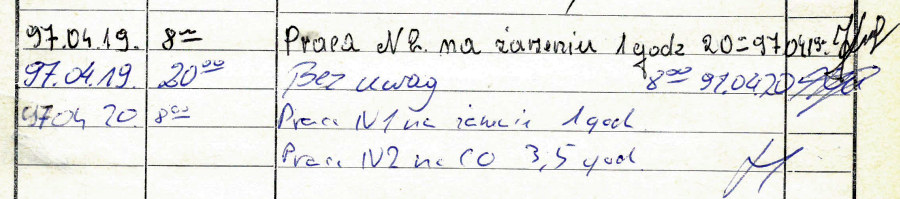 97.04.19. 8⁰⁰ Praca N2 na żarzeniu 1 godz 20⁰⁰ 97.04.19.
97.04.19. 20⁰⁰ Bez uwag 8⁰⁰ 97.04.20
97 04 20. 8⁰⁰ Praca N1 na żarzeniu 1 god
Praca N2 na CO 3,5 god.